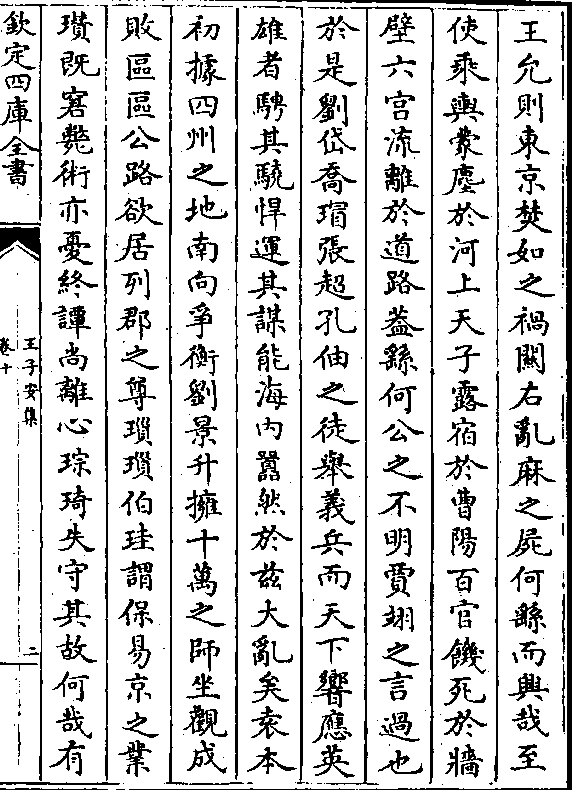 王允則東京焚如之禍關右亂麻之屍何繇而興哉至
使乘輿蒙塵於河上天子露宿於曹陽百官饑死於牆
壁六宫流離於道路葢繇何公之不明賈翊之言過也
於是劉岱喬瑁張超孔伷之徒舉義兵而天下響應英
雄者騁其驍悍運其謀能海内囂然於兹大亂矣袁本
初據四州之地南向爭衡劉景升擁十萬之師坐觀成
敗區區公路欲居列郡之尊瑣瑣伯珪謂保易京之業
瓚既窘斃術亦憂終譚尚離心琮琦失守其故何哉有
欽定四庫全書
王子安集
卷十
二